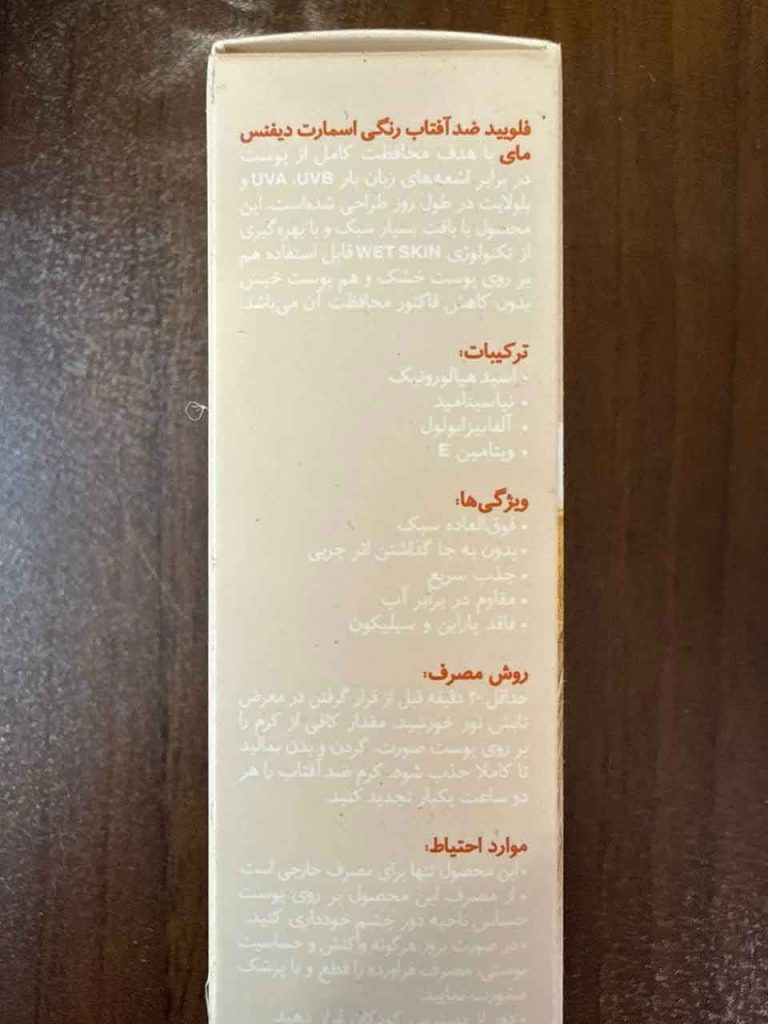 فلویید ضدآفتاب رنگی اسمارت دیفنس
مای با هدف محافظت کامل از پوست
در برابر اشعه‌های زیان بار UVA ،UVB و
بلولایت در طول روز طراحی شده‌است. این
محصول با بافت بسیار سبک و با بهره‌گیری
از تکنولوژی WET SKIN قابل استفاده هم
بر روی پوست خشک و هم پوست خیس
بدون کاهش فاکتور محافظت آن می‌باشد.
ترکیبات:
• اسید هیالورونیک
• نیاسینامید
• آلفابیزابولول
• ویتامین E
ویژگی‌ها:
• فوق‌العاده سبک
• بدون به جا گذاشتن اثر چربی
• جذب سریع
• مقاوم در برابر آب
• فاقد پارابن و سیلیکون
روش مصرف:
حداقل ۲۰ دقیقه قبل از قرار گرفتن در معرض
تابش نور خورشید، مقدار کافی از کرم را
بر روی پوست صورت، گردن و بدن بمالید
تا کاملا جذب شود. کرم ضدآفتاب را هر
دو ساعت یکبار تجدید کنید.
موارد احتیاط:
• این محصول تنها برای مصرف خارجی است.
• از مصرف این محصول بر روی پوست
حساس ناحیه دور چشم خودداری کنید.
• در صورت بروز هرگونه واکنش و حساسیت
پوستی، مصرف فرآورده را قطع و با پزشک
مشورت نمایید.
• دور از دسترس کودکان قرار دهید.